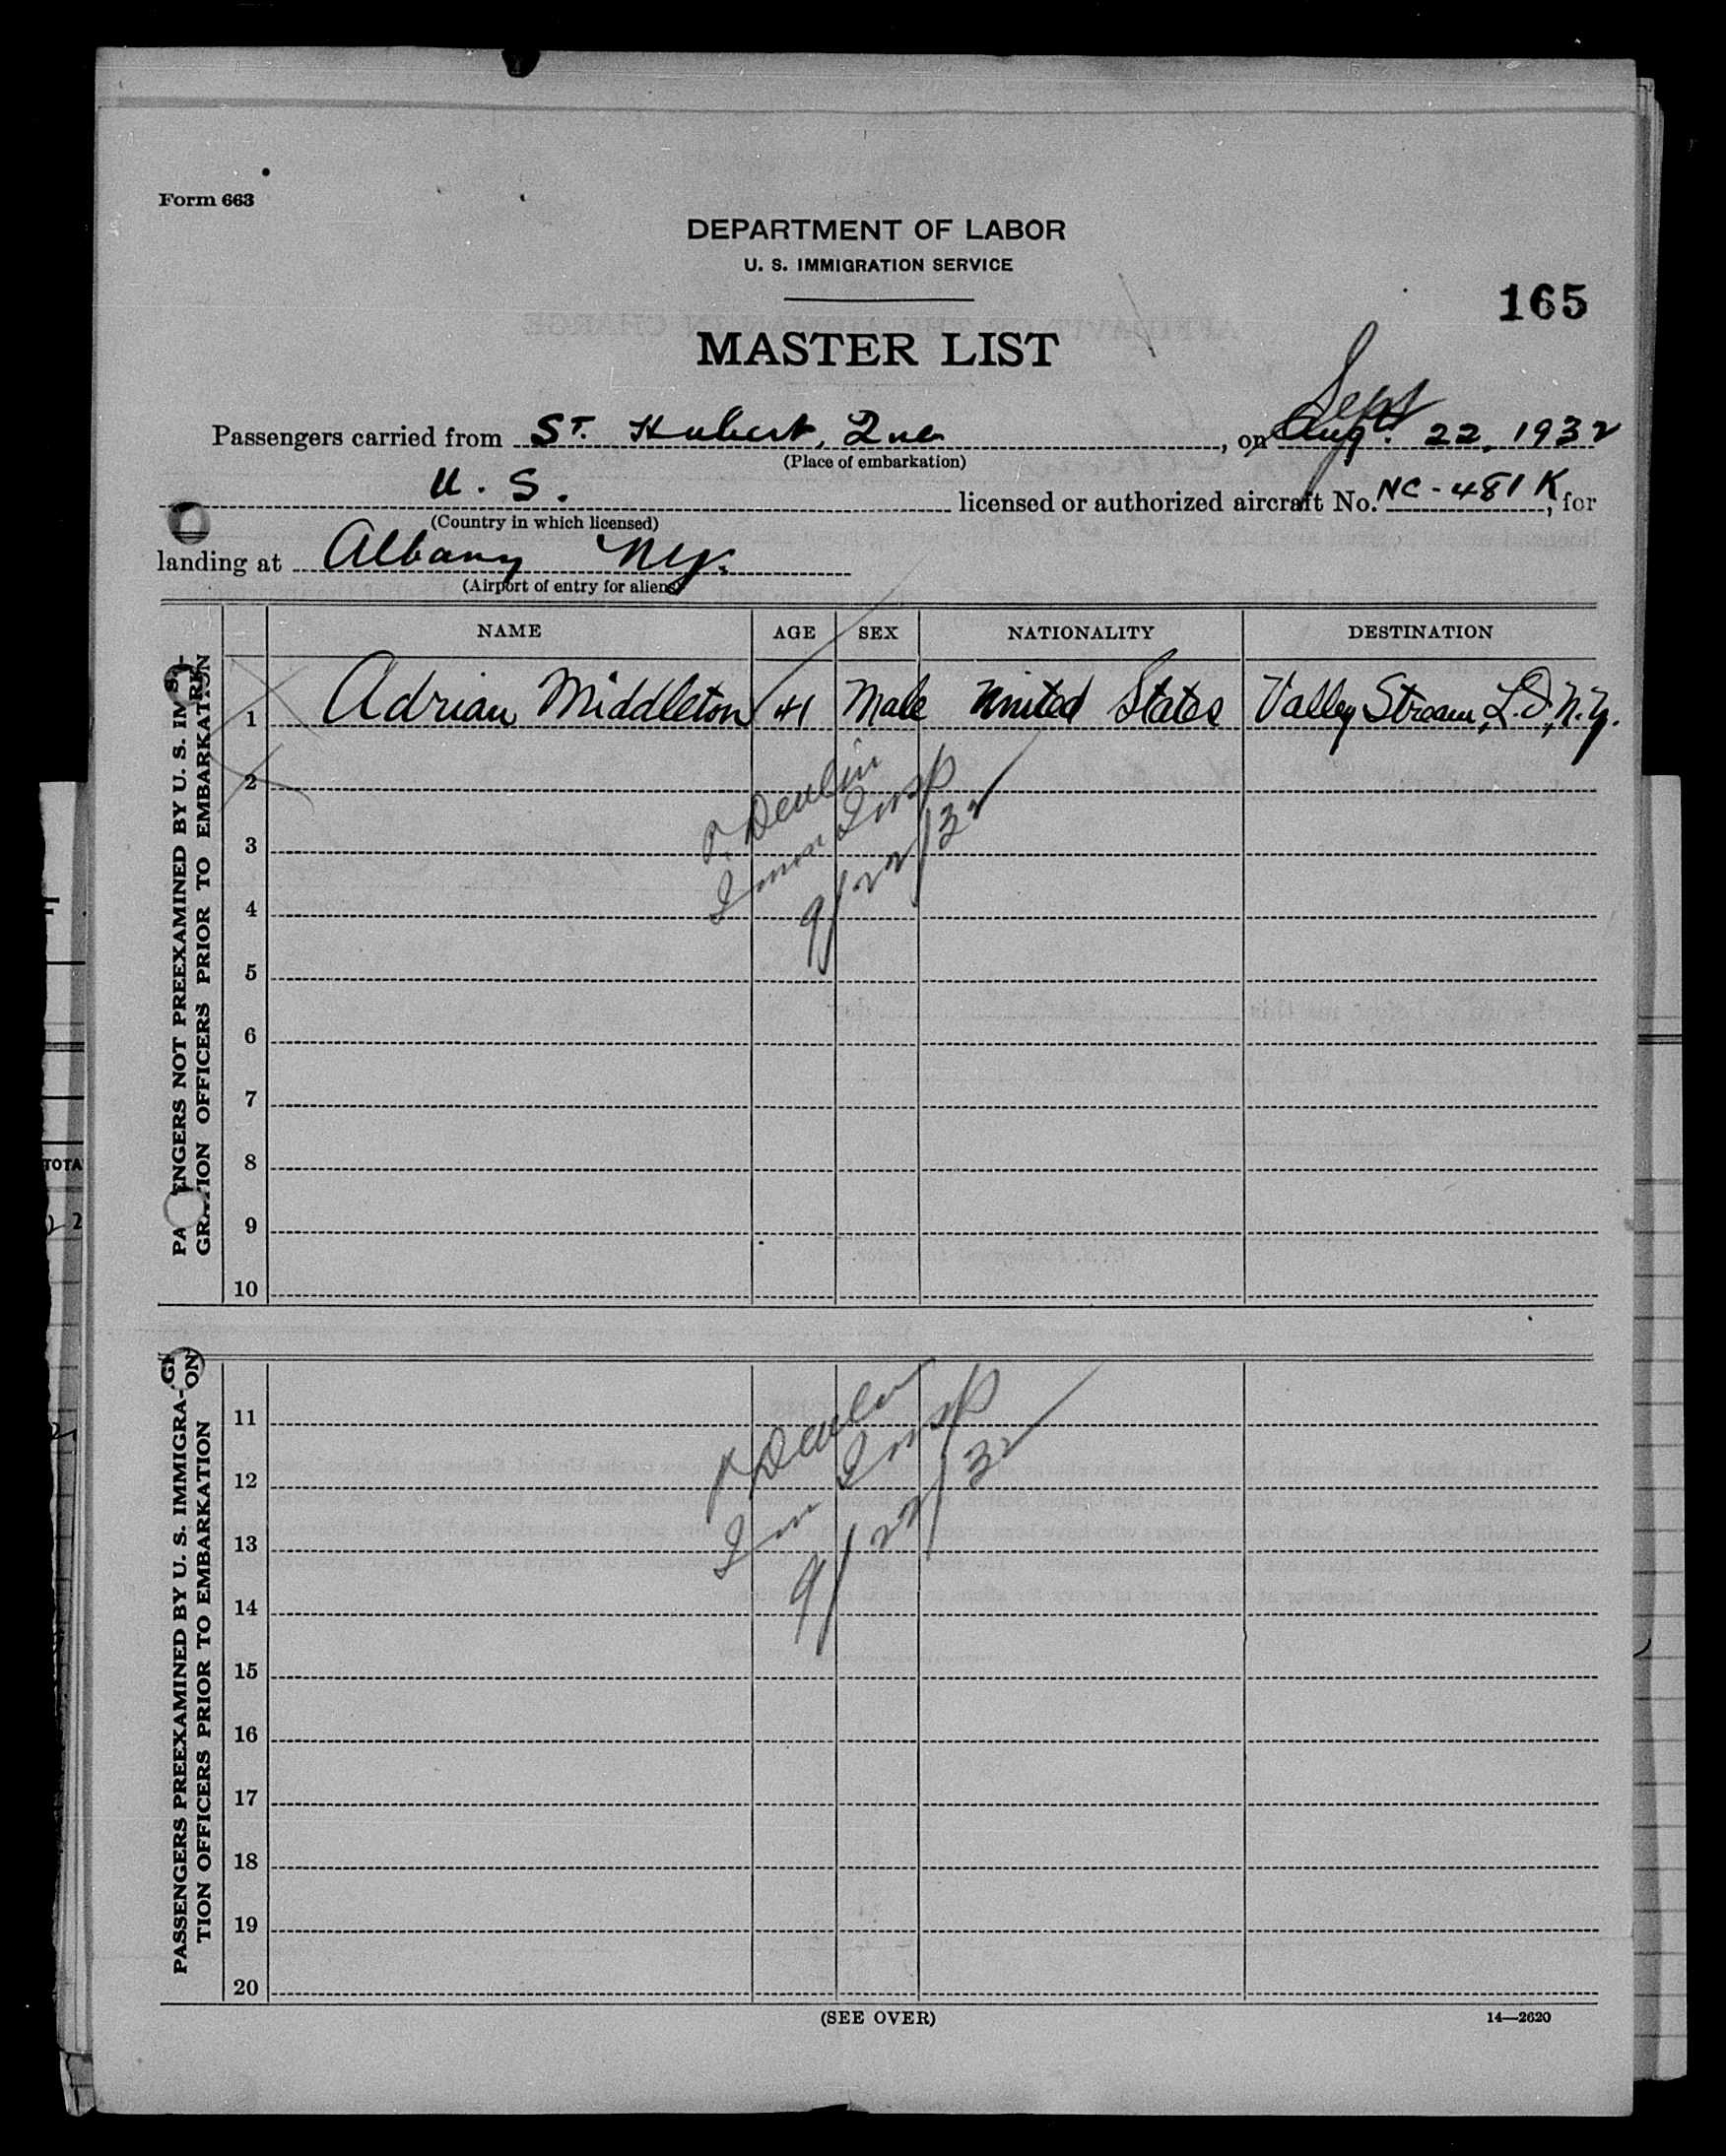 Form 663
DEPARTMENT OF LABOR
U. S. IMMIGRATION SERVICE
165
MASTER LIST
Sept
Passengers carried from St. Hubert, Que , on Aug. 22, 1932
(Place of embarkation)
U. S. licensed or authorized aircraft No. NC-481K, for
(Country in which licensed)
landing at Albany N.Y.
(Airport of entry for aliens)
NAME AGE SEX NATIONALITY DESTINATION
PA ENGERS NOT PREEXAMINED BY U. S. IM
GRATION OFFICERS PRIOR TO EMBARKATION
1 Adrian Middleton 41 Male United States Valley Stream, L.I., N.Y.
2
3
4
5
6
7
8
9
10
P. Devlin
Imm Insp
9/22/32
PASSENGERS PREEXAMINED BY U. S. IMMIGRA-
TION OFFICERS PRIOR TO EMBARKATION
11
12
13
14
15
16
17
18
19
20
P Devlin
Imm Insp
9/22/32
(SEE OVER)
14—2620
TOTA